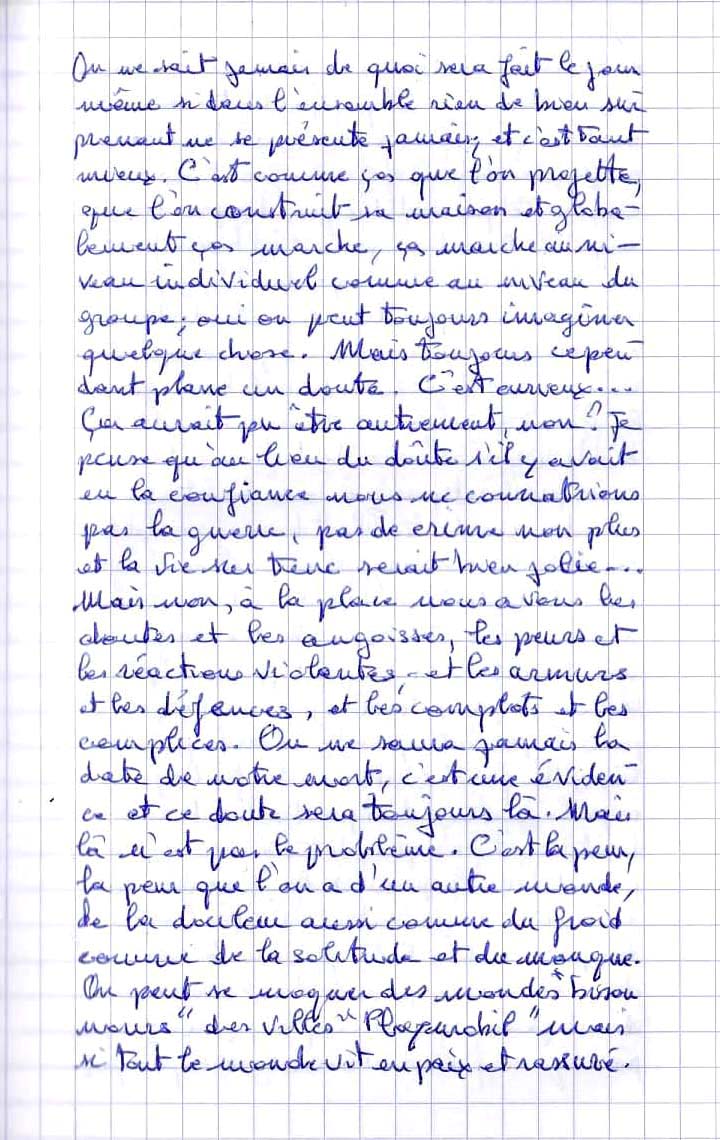 On ne sait jamais de quoi sera fait le jour
même si dans l'ensemble rien de bien sur
prenant ne se présente jamais; et c'est tant
mieux. C'est comme ças que l'on projette,
que l'on construit sa maison et globa-
lement ças marche, ça marche au ni-
veau individuel comme au niveau du
groupe; oui on peut toujours imaginer
quelque chose. Mais toujours cepen
dant plane un doute. C'est curieux...
Ça aurait pu être autrement, non? Je
pense qu'au lieu du doûte s'il y avait
eu la confiance nous ne connatrions
pas la guerre, pas de crime non plus
et la vie sur terre serait bien jolie...
Mais non, à la place nous avons les
doutes et les angoisses, les peurs et
les réactions violentes, et les armurs
et les défences, et les complots et les
complices. On ne saura jamais la
date de notre mort, c'est une éviden
ce et ce doute sera toujours là. Mais
là n'est pas le problème. C'est la peur,
la peur que l'on a d'un autre monde,
de la douleur aussi comme du froid
comme de la solitude et du manque.
On peut se moquer des mondes "bisou
nours" des villes "Playmobil" mais
si tout le monde vit en paix et rassuré.